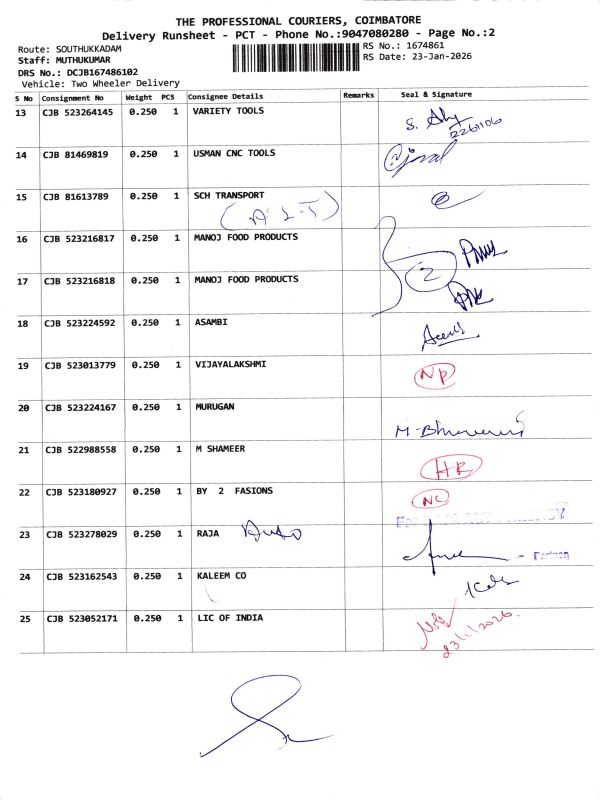 THE PROFESSIONAL COURIERS, COIMBATORE
Delivery Runsheet - PCT - Phone No.:9047080280 - Page No.:2
Route: SOUTHUKKADAM
RS No.: 1674861
Staff: MUTHUKUMAR
RS Date: 23-Jan-2026
DRS No.: DCJB167486102
Vehicle: Two Wheeler Delivery
S No Consignment No Weight PCS Consignee Details Remarks Seal & Signature
13 CJB 523264145 0.250 1 VARIETY TOOLS
14 CJB 81469819 0.250 1 USMAN CNC TOOLS
15 CJB 81613789 0.250 1 SCH TRANSPORT
16 CJB 523216817 0.250 1 MANOJ FOOD PRODUCTS
2
17 CJB 523216818 0.250 1 MANOJ FOOD PRODUCTS
18 CJB 523224592 0.250 1 ASAMBI
19 CJB 523013779 0.250 1 VIJAYALAKSHMI
NP
20 CJB 523224167 0.250 1 MURUGAN
21 CJB 522988558 0.250 1 M SHAMEER
22 CJB 523180927 0.250 1 BY 2 FASIONS
NC
23 CJB 523278029 0.250 1 RAJA Auto
Partner
24 CJB 523162543 0.250 1 KALEEM CO
25 CJB 523052171 0.250 1 LIC OF INDIA
23/1/2026.